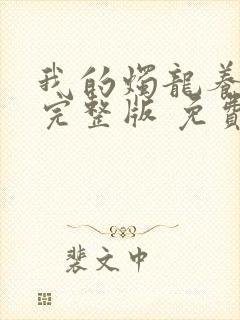 我的燭龍養
完整版 免費
裴文中